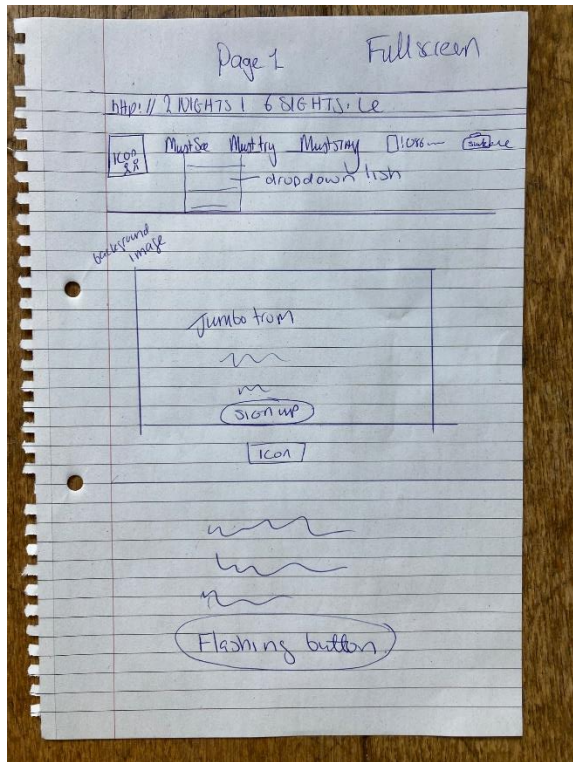 Page 1 Fullscreen
http:// 2 NIGHTS | 6 SIGHTS. ie
Icon
Must See Must try Must STAY
dropdown list
background
image
Jumbo trom
sign up
Icon
Flashing button